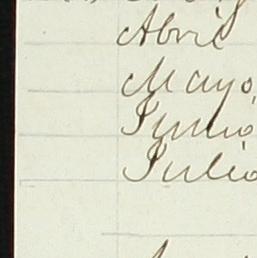 Abril
Mayo,
Junio
Julio